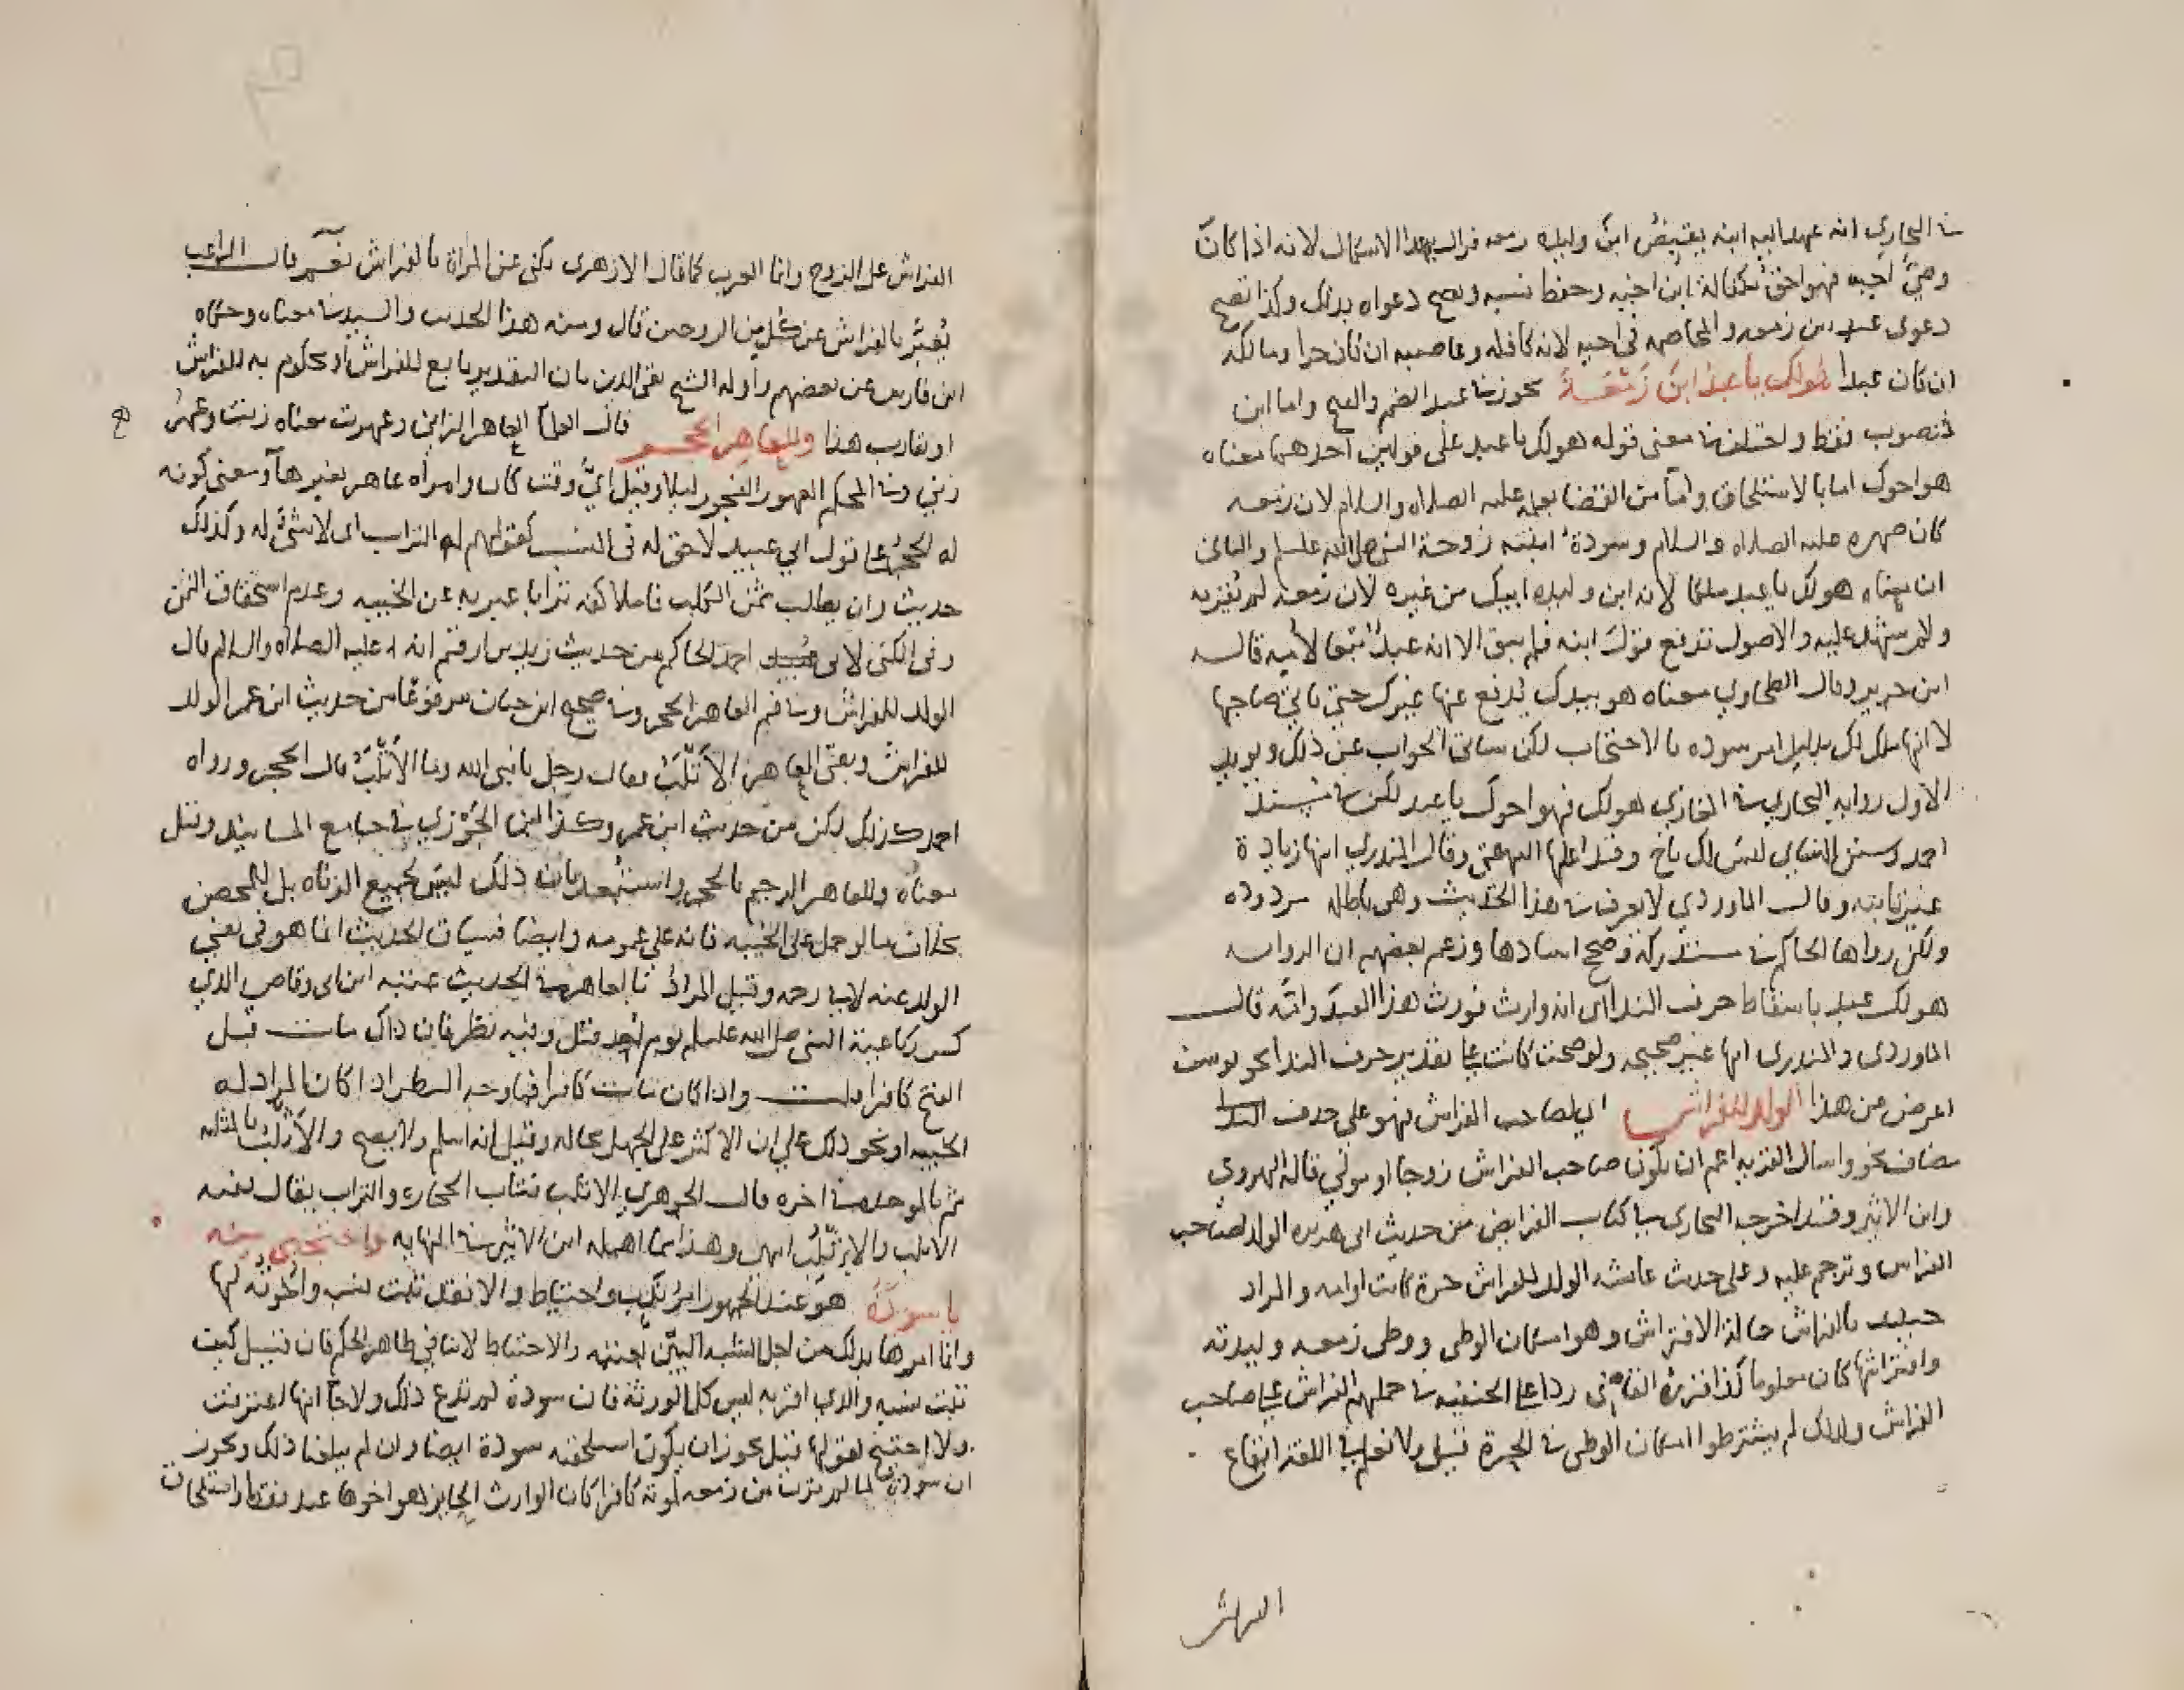 البخاري انه عهد اليه ابنه بقبض ابن وليدة زمعه فزال بهذا الاشكال لانه اذا كان
وصيّ اخيه فهو احق بكفالة ابن اخيه وحفظ نسبه وتصح دعواه بذلك وكذا تصح
دعوى عبد بن زمعه والمخاصمه في اخيه لانه كافله وعاصبه ان كان حرا ومالكه
ان كان عبدا هو لك يا عبد ابن زمعة يجوز في عبد الضم والفتح واما ابن
فنصوب فقط واختلف في معنى قوله هو لك يا عبد على قولين احدهما معناه
هو اخوك اما بالاستلحاق واما من القضا بعلمه عليه الصلاه والسلام لان زمعه
كان صهره عليه الصلاه والسلام وسودة ابنته زوجة النبي صلى الله عليه وسلم والثاني
ان معناه هو لك يا عبد ملكا لانه ابن وليدة ابيك من غيره لان زمعه لم يقر به
ولم يشهد عليه والاصول تدفع قول ابنه فلم يبق الا انه عبد تبعا لأمه قاله
ابن جرير وقال الطحاوي معناه هو بيدك يدفع عنها غيرك حتى ياتي صاحبها
لا انها ملك لك بدليل امر سوده بالاحتجاب لكن سياتي الجواب عن ذلك ويويد
الاول رواية البخاري في المغازي هو لك فهو اخوك يا عبد لكن في مسند
احمد وسنن النساي ليس لك باخ وقد اعلها البيهقي وقال المنذري انها زيادة
غير ثابته وقال الماوردي لا يعرف في هذا الحديث وهي باطله مردوده
ولكن رواها الحاكم في مستدركه وصحح اسنادها وزعم بعضهم ان الروايه
هو لك عبد باسقاط حرف الندا اى انه وارث فورث هذا العبد وامّه قال
الماوردى والمنذرى انها غير صحيحه ولو صحت كانت على تقدير حرف الندا نحو يوسف
اعرض عن هذا الولد للفراش اي لصاحب الفراش فهو على حذف
مضاف نحو واسال القريه اعم ان يكون صاحب الفراش زوجا او مولي قاله الهروى
وابن الاثير وقد اخرجه البخارى في كتاب الفرايض من حديث ابى هريره الولد لصاحب
الفراش وترجم عليه وعلى حديث عائشه الولد للفراش حرة كانت او امه والمراد
حينيد بالفراش حالة الافتراش وهو امكان الوطى ووطى زمعه وليدته
وافتراشها كان معلوما كذا قرره القاضى ردا على الحنفيه في حملهم الفراش على صاحب
الفراش ولذلك لم يشترطوا امكان الوطى في الحرة قيل ولا نعلم في اللغه ايقاع
الفراش
الفراش على الزوج وانما العرب كما قال الازهرى يكنى عن المراة بالفراش نعم قال الراغب
يُعبَّر بالفراش عن كل من الزوجين قال ومنه هذا الحديث والسيد في معناه وحكاه
ابن فارس عن بعضهم واوله الشيخ تقى الدين بان التقدير تابع للفراش او محكوم به للفراش
او يقارب هذا وللعاهر الحجر قال العلما العاهر الزاني وعهرت معناه زنت وعهر
زني وفي المحكم العهور الفجور ليلا وقيل ايّ وقت كان وامراه عاهر بغير هآ ومعنى كونه
له الحجر على قول ابي عبيد لا حق له فى النسب كقولهم له التراب اى لا شى له وكذلك
حديث وان يطالب بثمن الكلب فاملا كفه ترابا عبر به عن الخيبه وعدم استحقاق الثمن
وفى الكنى لابى احمد الحاكم من حديث زيد بن ارقم انه عليه الصلاه والسلام قال
الولد للفراش وفي فم العاهر الحجر وفي صحيح ابن حبان مرفوعا من حديث ابن عمر الولد
للفراش وبفي العاهر الأثلب فقال رجل يا نبى الله وما الأثلب قال الحجر ورواه
احمد كذلك لكن من حديث ابن عمرو وكذا ابن الجوزي في جامع المسانيد وقيل
معناه وللعاهر الرجم بالحجر واستبعد بان ذلك ليس لجميع الزناه بل للمحصن
بخلاف ما لو حمل على الخيبه فانه على عمومه وايضا فسياق الحديث انما هو فى نفي
الولد عنه لا في رجمه وقيل المراد بالعاهر في الحديث عتبه ابن ابى وقاص الذي
كسر رباعية النبى صلى الله عليه وسلم يوم احد قتل وفيه نظر فان ذاك مات قبل
الفتح كافرا قلت واذا كان مات كافرا فما وجه النظر اذا كان المراد له
الخيبه او نحو ذلك علي ان الاكثر على الجهل بحاله وقيل انه اسلم ولا يصح والأثلب بالمثلثه
ثم بالموحده في اخره قال الجوهري الاثلب فتات الحجاره والتراب يقال بفيه
الاثلب والإثلب انتهى وهذا مما اهمله ابن الاثير في النهايه واحتجبى منه
يا سودة هو عند الجمهور امر ندب واحتياط والا فقد ثبت نسبه واخوته لها
وانما امرها بذلك من اجل الشبه البيّن بعتبه والاحتياط لا في ظاهر الحكم فان قيل كيف
ثبت نسبه والذي اقر به ليس كل الورثة فان سودة لم تدع ذلك ولا جا انها اعترفت
ولا احتج بقولها قيل يجوز ان يكون استلحقته سودة ايضا وان لم يبلغنا ذلك ويجوز
ان سودة لما لم ترث من زمعه لموته كافرا كان الوارث الحايز هو اخوها عبد فقط واستلحاق